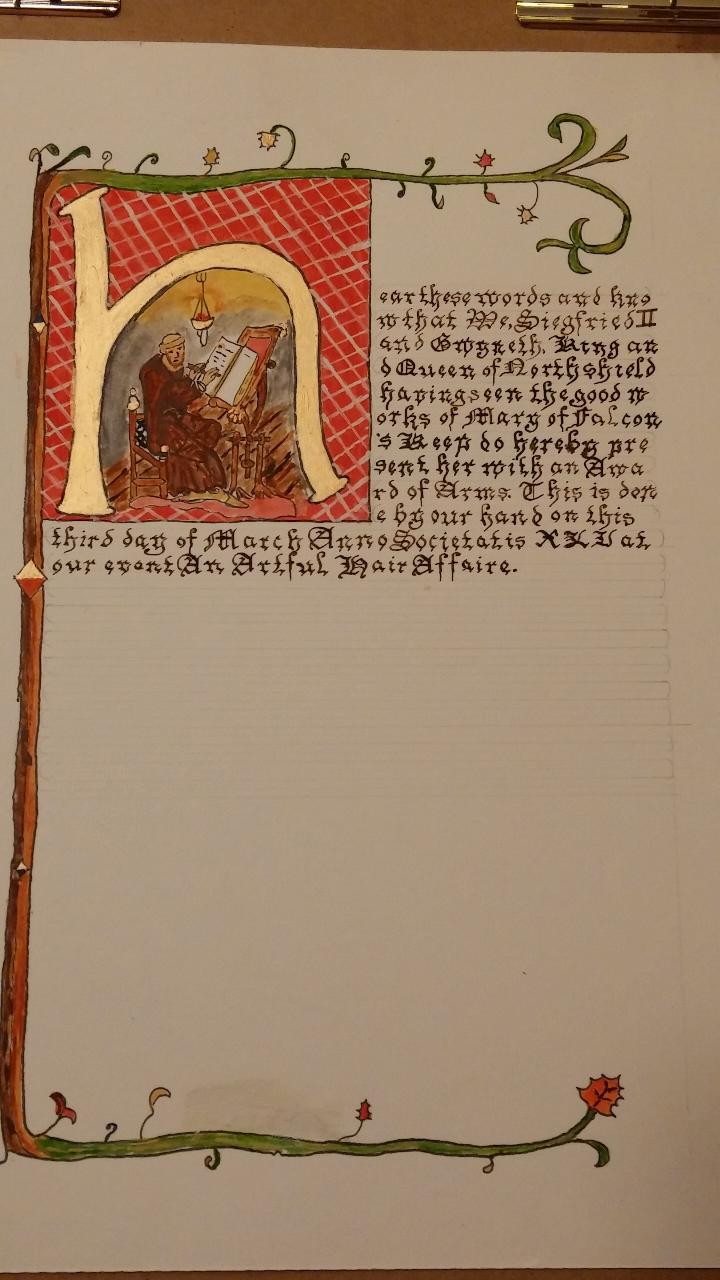 h
ear these words and kno
w that We, Siegfried II
and Gwyneth, King an
d Queen of Northshield
having seen the good w
orks of Mary of Falcon
's Keep do hereby pre
sent her with an Awa
rd of Arms. This is don
e by our hand on this
third day of March Anno Societatis XLV at
our event An Artful Hair Affaire.